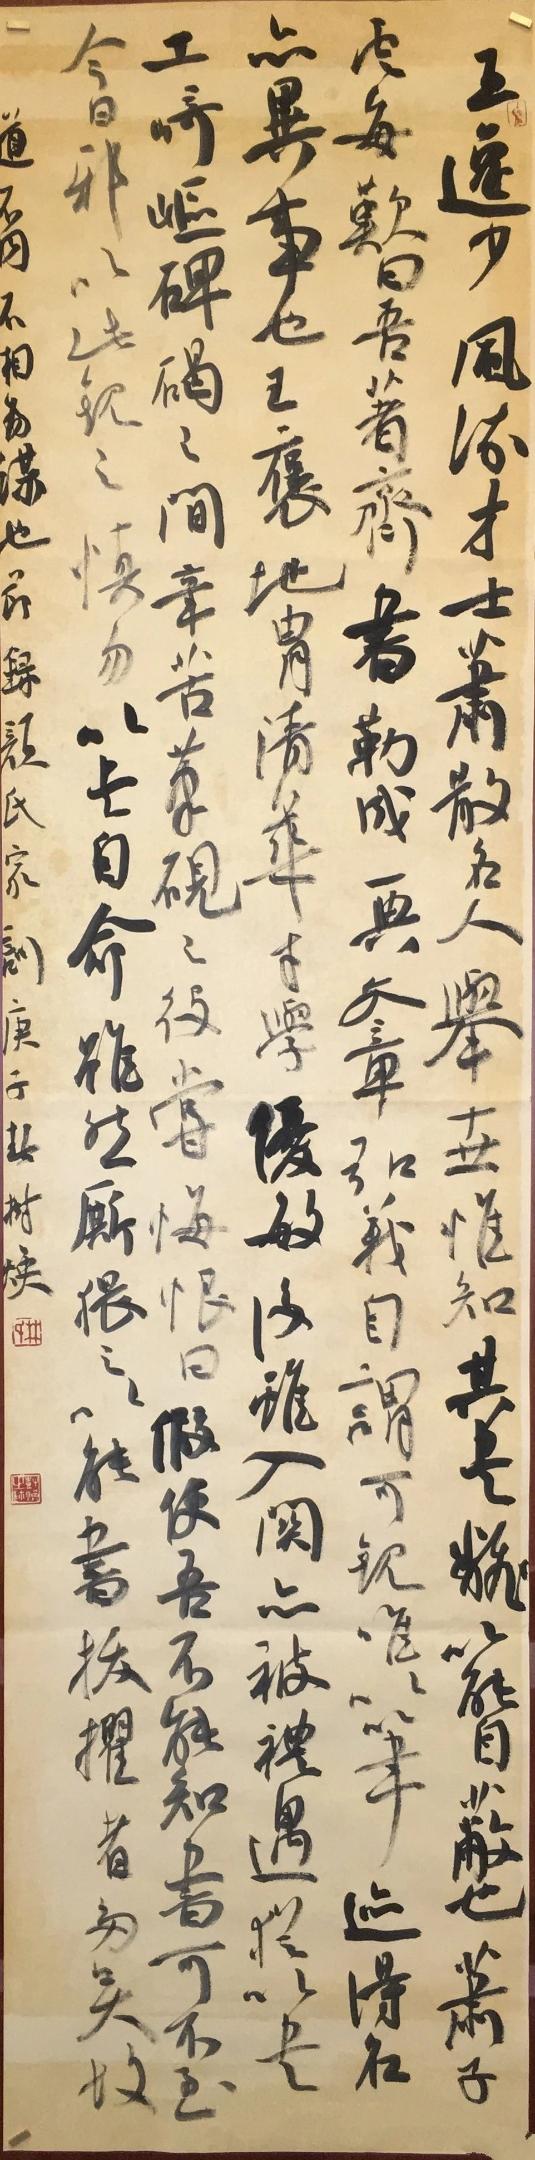 王逸少風流才士蕭散名人舉世惟知其書翻以能自蔽也蕭子
雲每歎曰吾著齊書勒成一典文章弘義自謂可觀唯以筆迹得名
亦異事也王褒地胄清華才學優敏後雖入關亦被禮遇猶以書
工崎嶇碑碣之間辛苦筆硯之役嘗悔恨曰假使吾不能知書可不至
今日邪以此觀之慎勿以書自命雖然廝猥之人以能書拔擢者多矣故
道不同不相為謀也節錄顏氏家訓庚子春樹煥